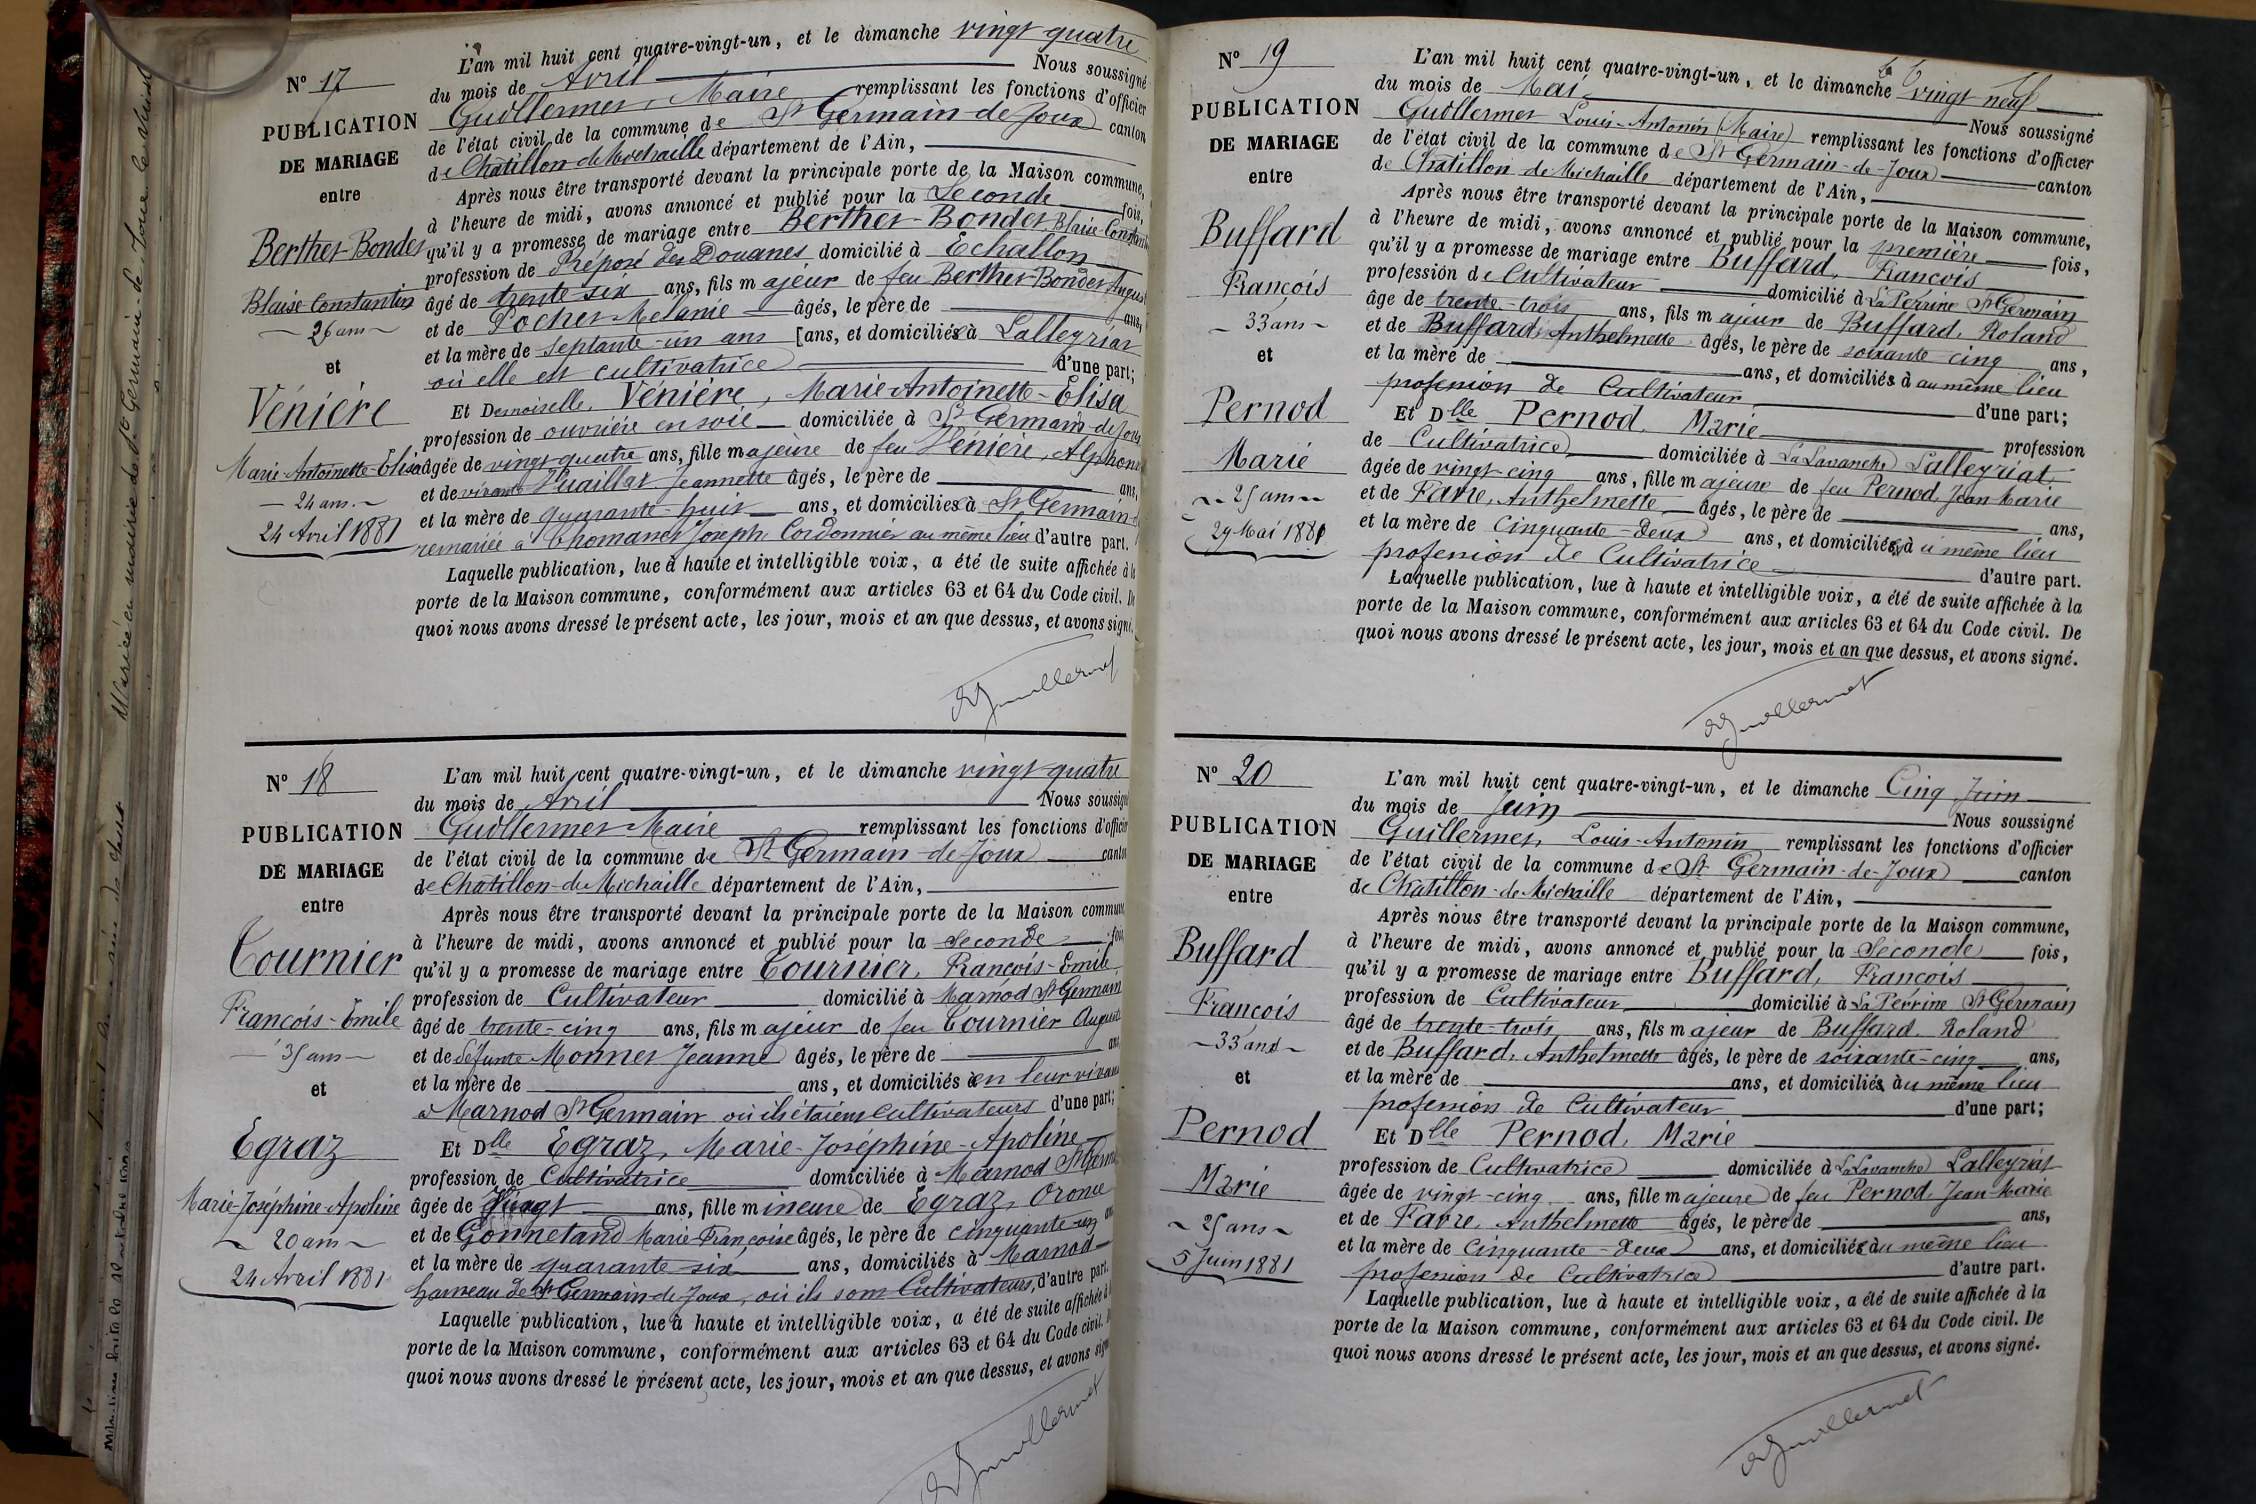 N° 17
PUBLICATION
DE MARIAGE
entre
Berthet-Bondet
Blaise Constantin
26 ans
et
Vénière
Marie-Antoinette-Elisa
24 ans
24 Avril 1881
L'an mil huit cent quatre-vingt-un, et le dimanche vingt quatre
du mois de Avril Nous soussigné
Guillermet, Maire remplissant les fonctions d'officier
de l'état civil de la commune de St Germain-de-Joux canton
de Châtillon de Michaille département de l'Ain,
Après nous être transporté devant la principale porte de la Maison commune,
à l'heure de midi, avons annoncé et publié pour la Seconde fois,
qu'il y a promesse de mariage entre Berthet-Bondet, Blaise-Constantin
profession de Préposé des Douanes domicilié à Echallon
âgé de trente six ans, fils majeur de feu Berthet-Bondet August
et de Pochet Mélanie âgés, le père de ans,
et la mère de septante-un ans [ans, et domiciliés à Lalleyriat
où elle est cultivatrice d'une part;
Et Demoiselle, Vénière, Marie-Antoinette-Elisa
profession de ouvrière en soie domiciliée à St Germain-de-Joux
âgée de vingt-quatre ans, fille majeure de feu Vénière, Alphonse
et de vivante Vuaillat Jeannette âgés, le père de ans,
et la mère de quarante-huit ans, et domiciliés à St Germain-d
remariée à Thomasset Joseph, Cordonnier au même lieu d'autre part.
Laquelle publication, lue à haute et intelligible voix, a été de suite affichée à la
porte de la Maison commune, conformément aux articles 63 et 64 du Code civil. De
quoi nous avons dressé le présent acte, les jour, mois et an que dessus, et avons signé.
Guillermet
N° 18
PUBLICATION
DE MARIAGE
entre
Tournier
François-Emile
35 ans
et
Egraz
Marie-Joséphine-Apoline
20 ans
24 Avril 1881
L'an mil huit cent quatre-vingt-un, et le dimanche vingt-quatre
du mois de Avril Nous soussigné
Guillermet Maire remplissant les fonctions d'officier
de l'état civil de la commune de St Germain-de-Joux canton
de Châtillon-de-Michaille département de l'Ain,
Après nous être transporté devant la principale porte de la Maison commune,
à l'heure de midi, avons annoncé et publié pour la seconde fois,
qu'il y a promesse de mariage entre Tournier, François-Emile,
profession de Cultivateur domicilié à Marnod St Germain
âgé de trente-cinq ans, fils majeur de feu Tournier August
et de défunte Monnet Jeanne âgés, le père de ans
et la mère de ans, et domiciliés en leur vivant
à Marnod St Germain où ils étaient cultivateurs d'une part;
Et Dlle Egraz, Marie-Joséphine-Apoline
profession de Cultivatrice domiciliée à Marnod St Germ
âgée de Vingt ans, fille mineure de Egraz, Oronce
et de Gonnetand Marie-Françoise âgés, le père de cinquante-un ans
et la mère de quarante-six ans, domiciliés à Marnod
hameau de St Germain-de-Joux, où ils sont Cultivateurs, d'autre part.
Laquelle publication, lue à haute et intelligible voix, a été de suite affichée à la
porte de la Maison commune, conformément aux articles 63 et 64 du Code civil. D
quoi nous avons dressé le présent acte, les jour, mois et an que dessus, et avons signé
Guillermet
N° 19
PUBLICATION
DE MARIAGE
entre
Buffard
François
33 ans
et
Pernod
Marie
25 ans
29 Mai 1881
L'an mil huit cent quatre-vingt-un, et le dimanche vingt neuf
du mois de Mai Nous soussigné
Guillermet Louis-Antonin (Maire) remplissant les fonctions d'officier
de l'état civil de la commune de St Germain-de-Joux canton
de Châtillon de Michaille département de l'Ain,
Après nous être transporté devant la principale porte de la Maison commune,
à l'heure de midi, avons annoncé et publié pour la première fois,
qu'il y a promesse de mariage entre Buffard, François
profession de Cultivateur domicilié à La Perrine St Germain
âge de trente-trois ans, fils majeur de Buffard, Roland
et de Buffard, Anthelmette âgés, le père de soixante-cinq ans,
et la mère de ans, et domiciliés à au même lieu
profession de Cultivateur d'une part;
Et Dlle Pernod, Marie profession
de Cultivatrice domiciliée à La Lavanche Lalleyriat
âgée de vingt-cinq ans, fille majeure de feu Pernod, Jean Marie
et de Favre, Anthelmette âgés, le père de ans,
et la mère de Cinquante-deux ans, et domiciliés à u même lieu
profession de Cultivatrice d'autre part.
Laquelle publication, lue à haute et intelligible voix, a été de suite affichée à la
porte de la Maison commune, conformément aux articles 63 et 64 du Code civil. De
quoi nous avons dressé le présent acte, les jour, mois et an que dessus, et avons signé.
Guillermet
N° 20
PUBLICATION
DE MARIAGE
entre
Buffard
François
33 ans
et
Pernod
Marie
25 ans
5 Juin 1881
L'an mil huit cent quatre-vingt-un, et le dimanche Cinq Juin
du mois de Juin Nous soussigné
Guillermet, Louis-Antonin remplissant les fonctions d'officier
de l'état civil de la commune de St Germain-de-Joux canton
de Châtillon-de-Michaille département de l'Ain,
Après nous être transporté devant la principale porte de la Maison commune,
à l'heure de midi, avons annoncé et publié pour la Seconde fois,
qu'il y a promesse de mariage entre Buffard, François
profession de Cultivateur domicilié à La Perrine St Germain
âgé de trente-trois ans, fils majeur de Buffard, Roland
et de Buffard, Anthelmette âgés, le père de soixante-cinq ans,
et la mère de ans, et domiciliés à u même lieu
profession de Cultivateur d'une part;
Et Dlle Pernod, Marie
profession de Cultivatrice domiciliée à La Lavanche Lalleyriat
âgée de vingt-cinq ans, fille majeure de feu Pernod, Jean-Marie
et de Favre, Anthelmette âgés, le père de ans,
et la mère de Cinquante-deux ans, et domiciliés à u même lieu
profession de Cultivatrice d'autre part.
Laquelle publication, lue à haute et intelligible voix, a été de suite affichée à la
porte de la Maison commune, conformément aux articles 63 et 64 du Code civil. De
quoi nous avons dressé le présent acte, les jour, mois et an que dessus, et avons signé.
Guillermet